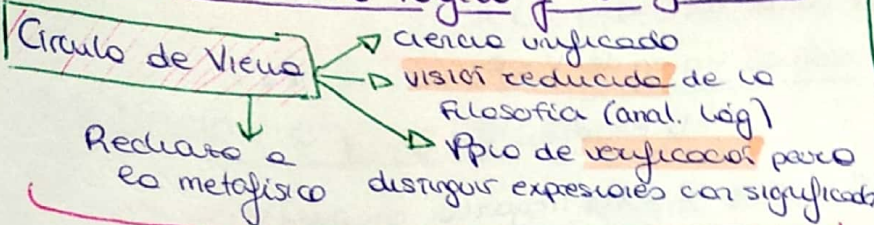 Circulo de Viena
ciencia unificada
visión reducida de la
filosofía (anal. lóg)
Ppio de verificación para
distinguir expresiones con significado
Rechazo a
la metafísica